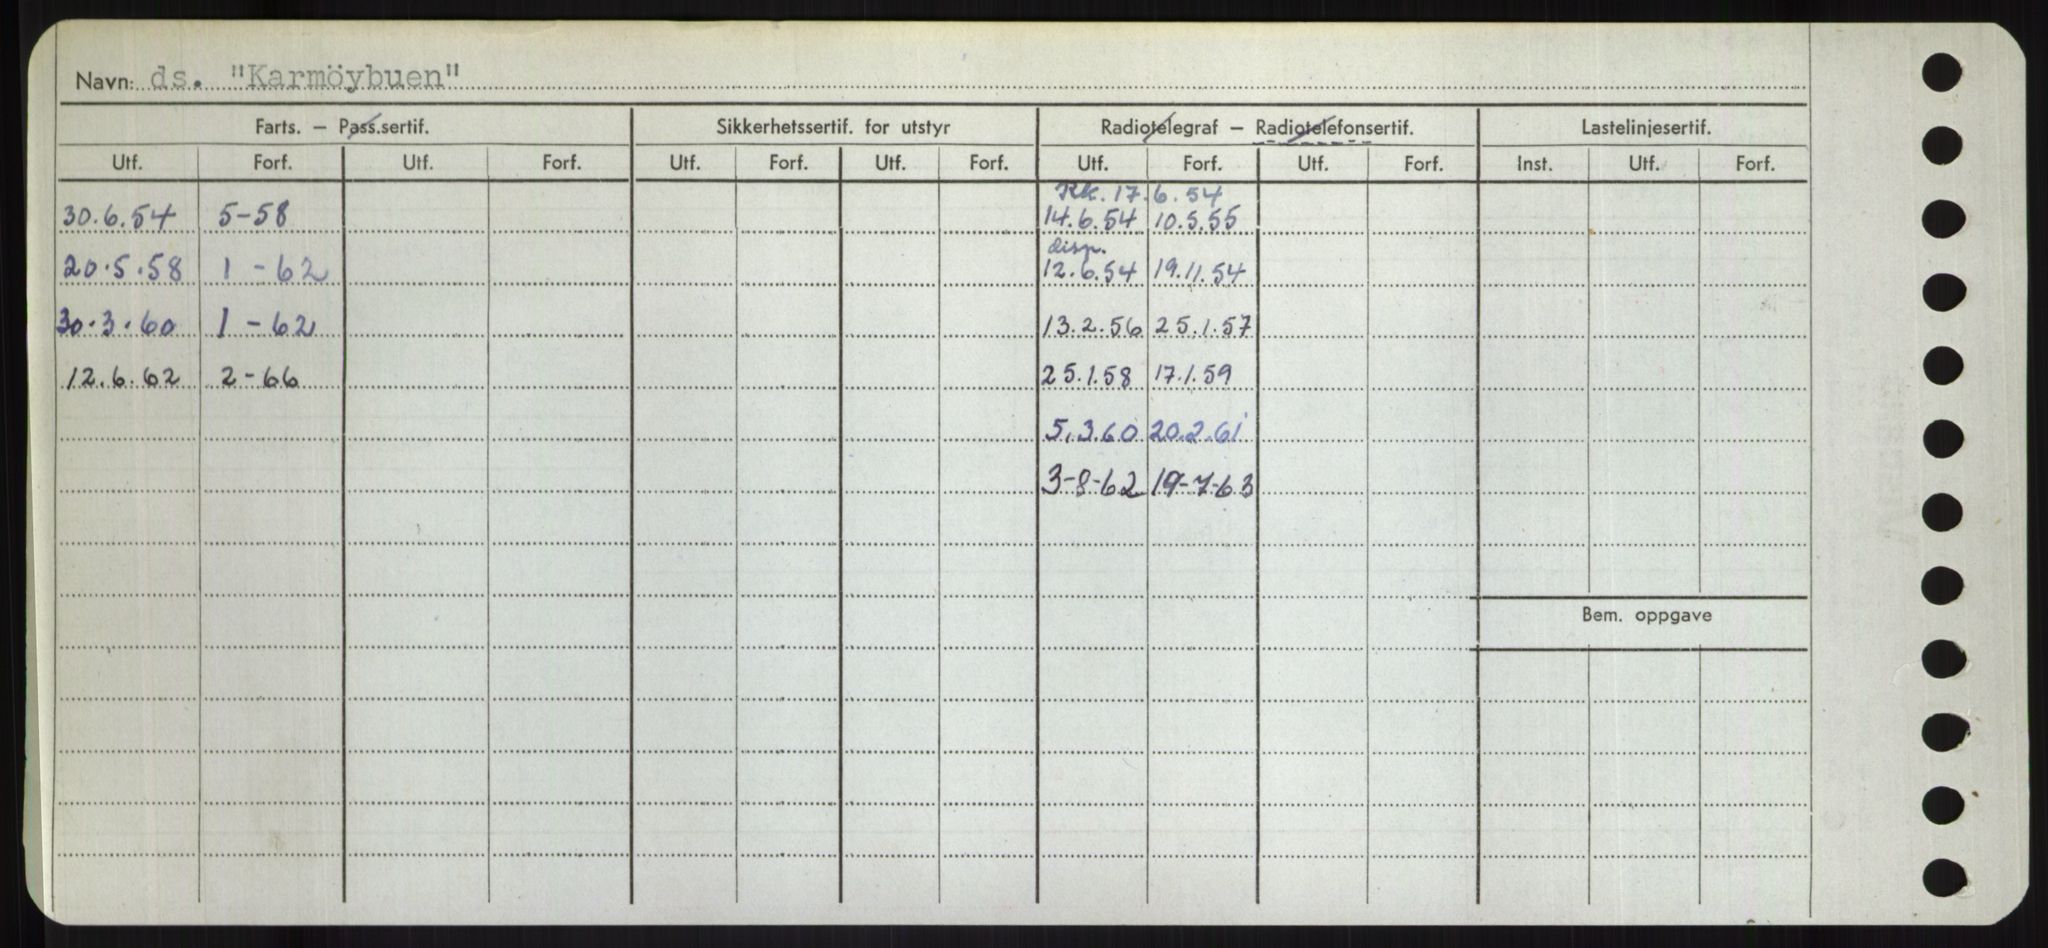 Navn: ds. "Karmöybuen"
Farts. – Pass.sertif. Sikkerhetssertif. for utstyr Radiotelegraf – Radiotelefonsertif. Lastelinjesertif.
Utf. Forf. Utf. Forf. Utf. Forf. Utf. Forf. Utf. Forf. Utf. Forf. Inst. Utf. Forf.
Kk. 17.6.54
30.6.54 5-58 14.6.54 10.5.55
disp.
20.5.58 1-62 12.6.54 19.11.54
30.3.60 1-62 13.2.56 25.1.57
12.6.62 2-66 25.1.58 17.1.59
5.3.60 20.2.61
3-8-62 19-7-63
Bem. oppgave